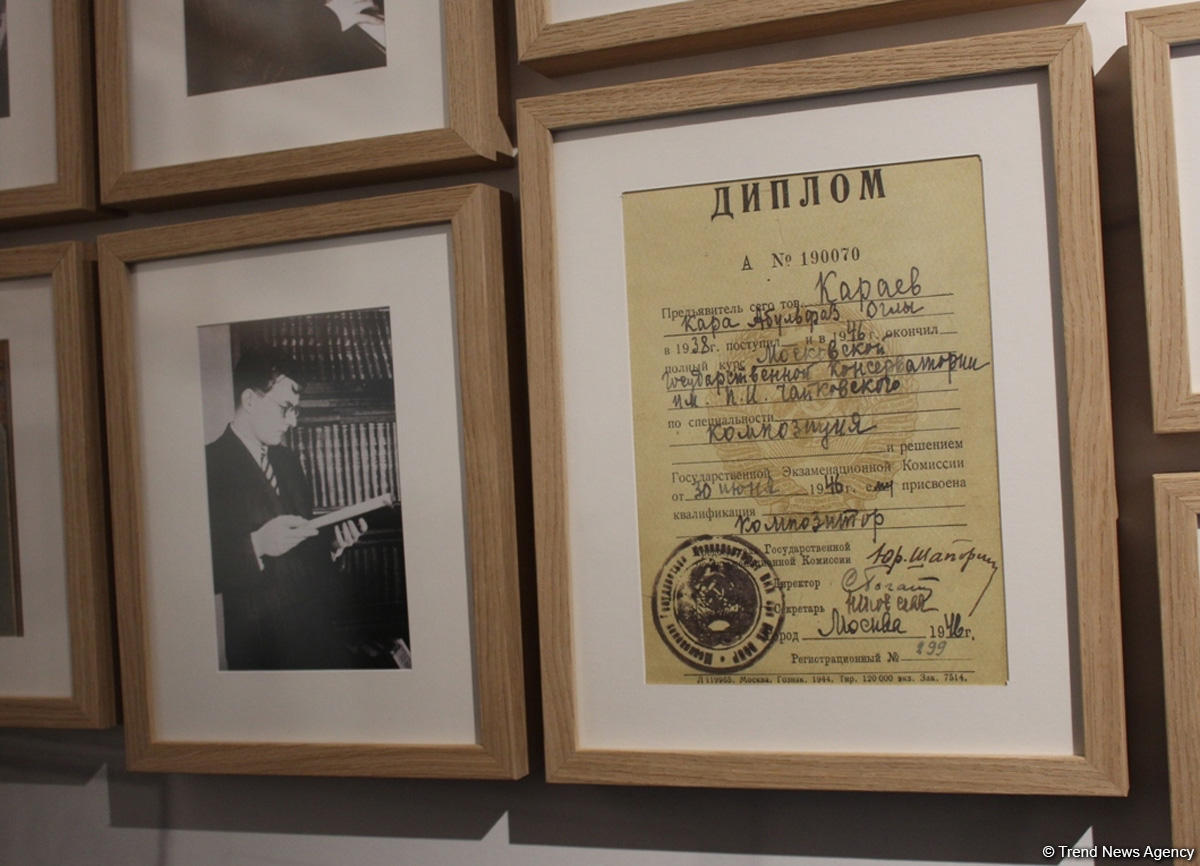 ДИПЛОМ
А № 190070
Предъявитель сего тов. Караев
Кара Абульфаз Оглы
в 1938г. поступил и в 1946г. окончил
полный курс Московской
Государственной Консерватории
им. П.И. Чайковского
по специальности
композиция
и решением
Государственной Экзаменационной Комиссии
от 30 июня 1946г. ему присвоена
квалификация
композитор
Государственной
Комиссии Юр. Шапорин
Директор
Секретарь
Город Москва 1946г.
Регистрационный № 299
Л 119965. Москва. Гознак. 1944. Тир. 120 000 экз. Зак. 7514.
© Trend News Agency